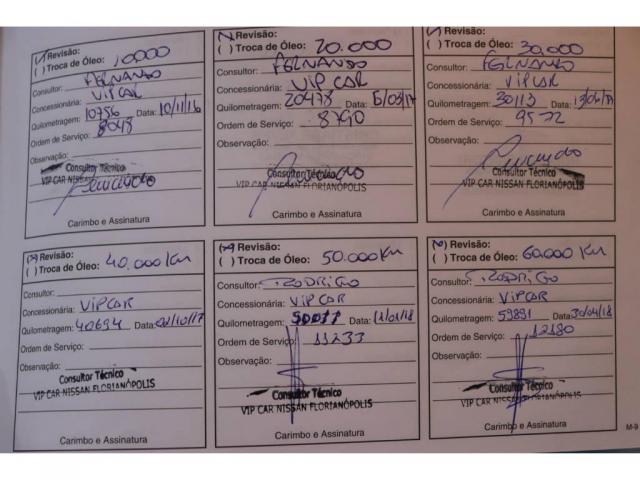 (✓) Revisão: 10000
( ) Troca de Óleo:
Consultor: FERNANDO
Concessionária: VIPCAR
Quilometragem: 10756 Data: 10/11/16
Ordem de Serviço: 8048
Observação:
Consultor Técnico
VIP CAR NISSAN
Carimbo e Assinatura
Revisão: 20.000
( ) Troca de Óleo:
Consultor: FERNANDO
Concessionária: VIP CAR
Quilometragem: 20478 Data:
Ordem de Serviço: 8790
Observação:
Consultor Técnico
VIP CAR NISSAN FLORIANÓPOLIS
Carimbo e Assinatura
Revisão: 30,000
( ) Troca de Óleo:
Consultor: FERNANDO
Concessionária: VIPCAR
Quilometragem: 30113 Data:
Ordem de Serviço: 9572
Observação:
Consultor Técnico
VIP CAR NISSAN FLORIANÓPOLIS
Carimbo e Assinatura
(x) Revisão:
( ) Troca de Óleo: 40.000 KM
Consultor:
Concessionária: VIPCAR
Quilometragem: 40694 Data:
Ordem de Serviço:
Observação:
Consultor Técnico
VIP CAR NISSAN FLORIANÓPOLIS
Carimbo e Assinatura
(x) Revisão:
( ) Troca de Óleo: 50.000 KM
Consultor: RODRIGO
Concessionária: VIPCAR
Quilometragem: Data: 11/01/18
Ordem de Serviço: 11233
Observação:
Consultor Técnico
VIP CAR NISSAN FLORIANÓPOLIS
Carimbo e Assinatura
Revisão:
( ) Troca de Óleo: 60.000 KM
Consultor: RODRIGO
Concessionária: VIPCAR
Quilometragem: 59891 Data: 30/04/18
Ordem de Serviço: 12180
Observação:
Consultor Técnico
VIP CAR NISSAN FLORIANÓPOLIS
Carimbo e Assinatura
M-9